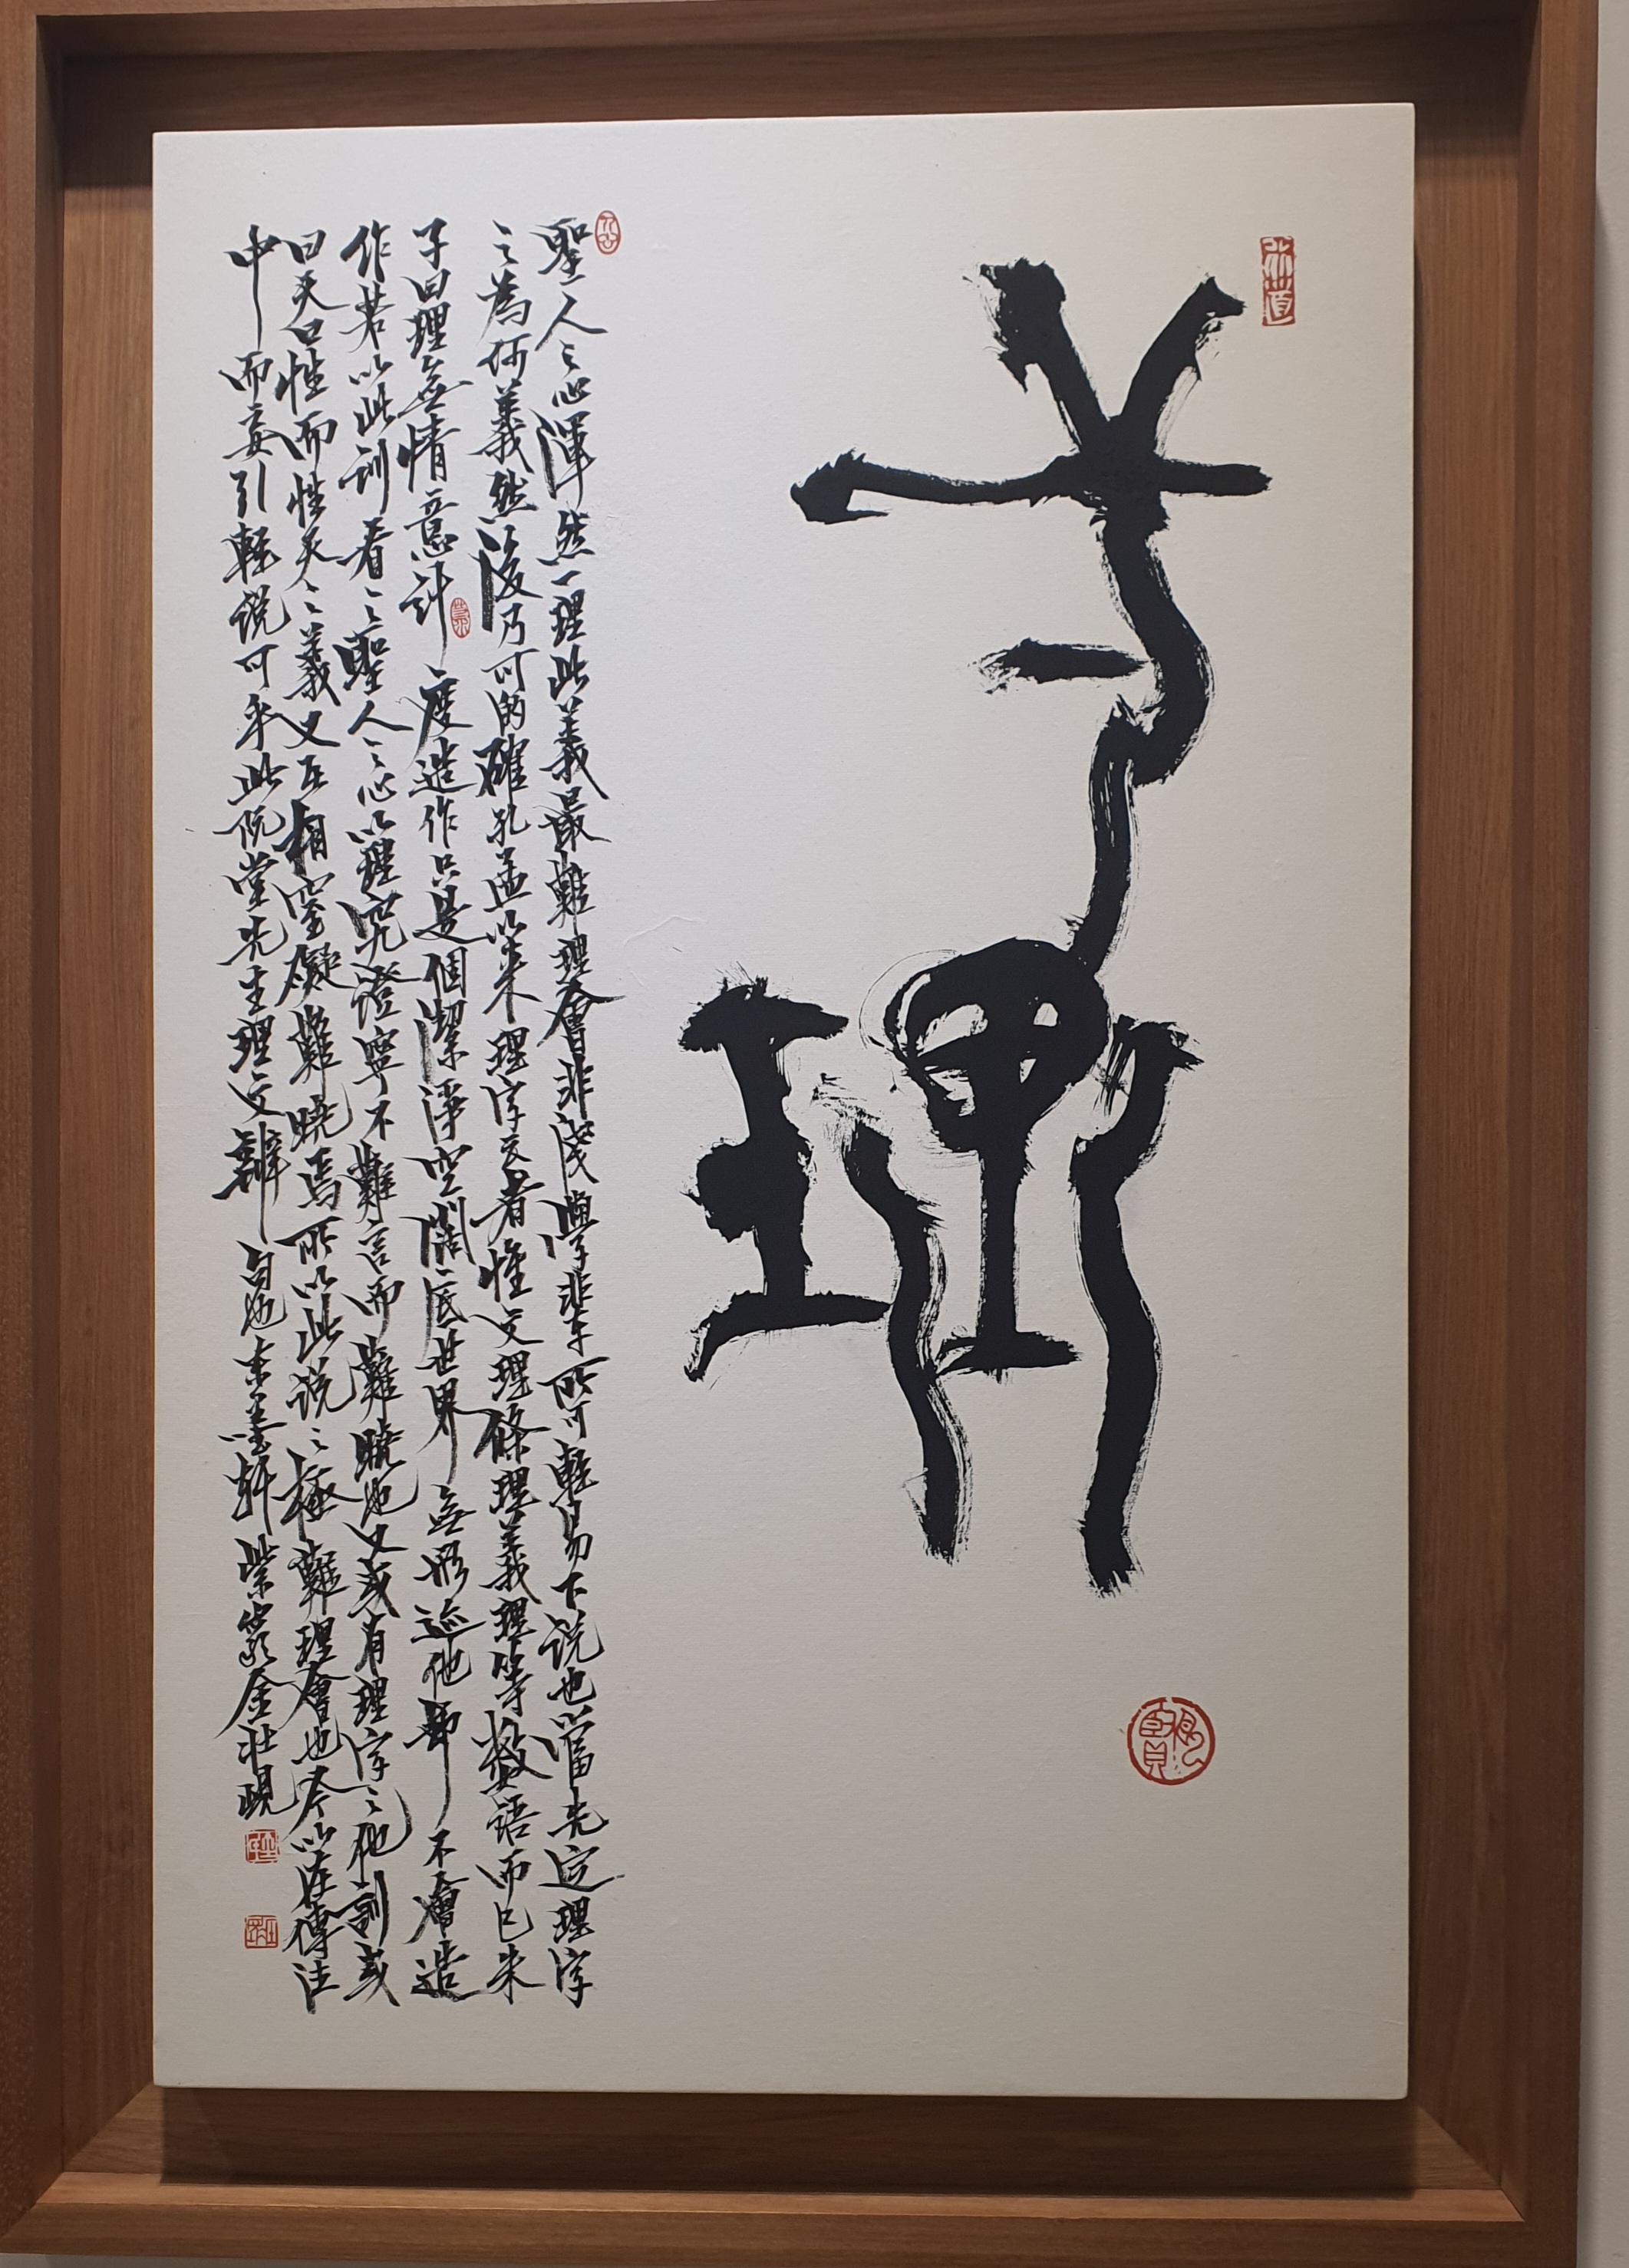 弌理
聖人之心渾然一理此義最難理會非淺學非才所可輕易下說也當先定理字
之為何義然後乃可的確孔孟以來理字者惟文理條理義理等數語而已朱
子曰理無情意計度造作只是個潔淨空闊底世界無形迹他却不會造
作若以此訓看之聖人之心以理究澄寧不難言而難曉也又或有理字之他訓或
曰天曰性而性天之義又互相窒礙難曉焉所以此說之極難理會也今以傳注
中而妄引輕說可乎此阮堂先生理文辨句也東墨軒紫金壯現